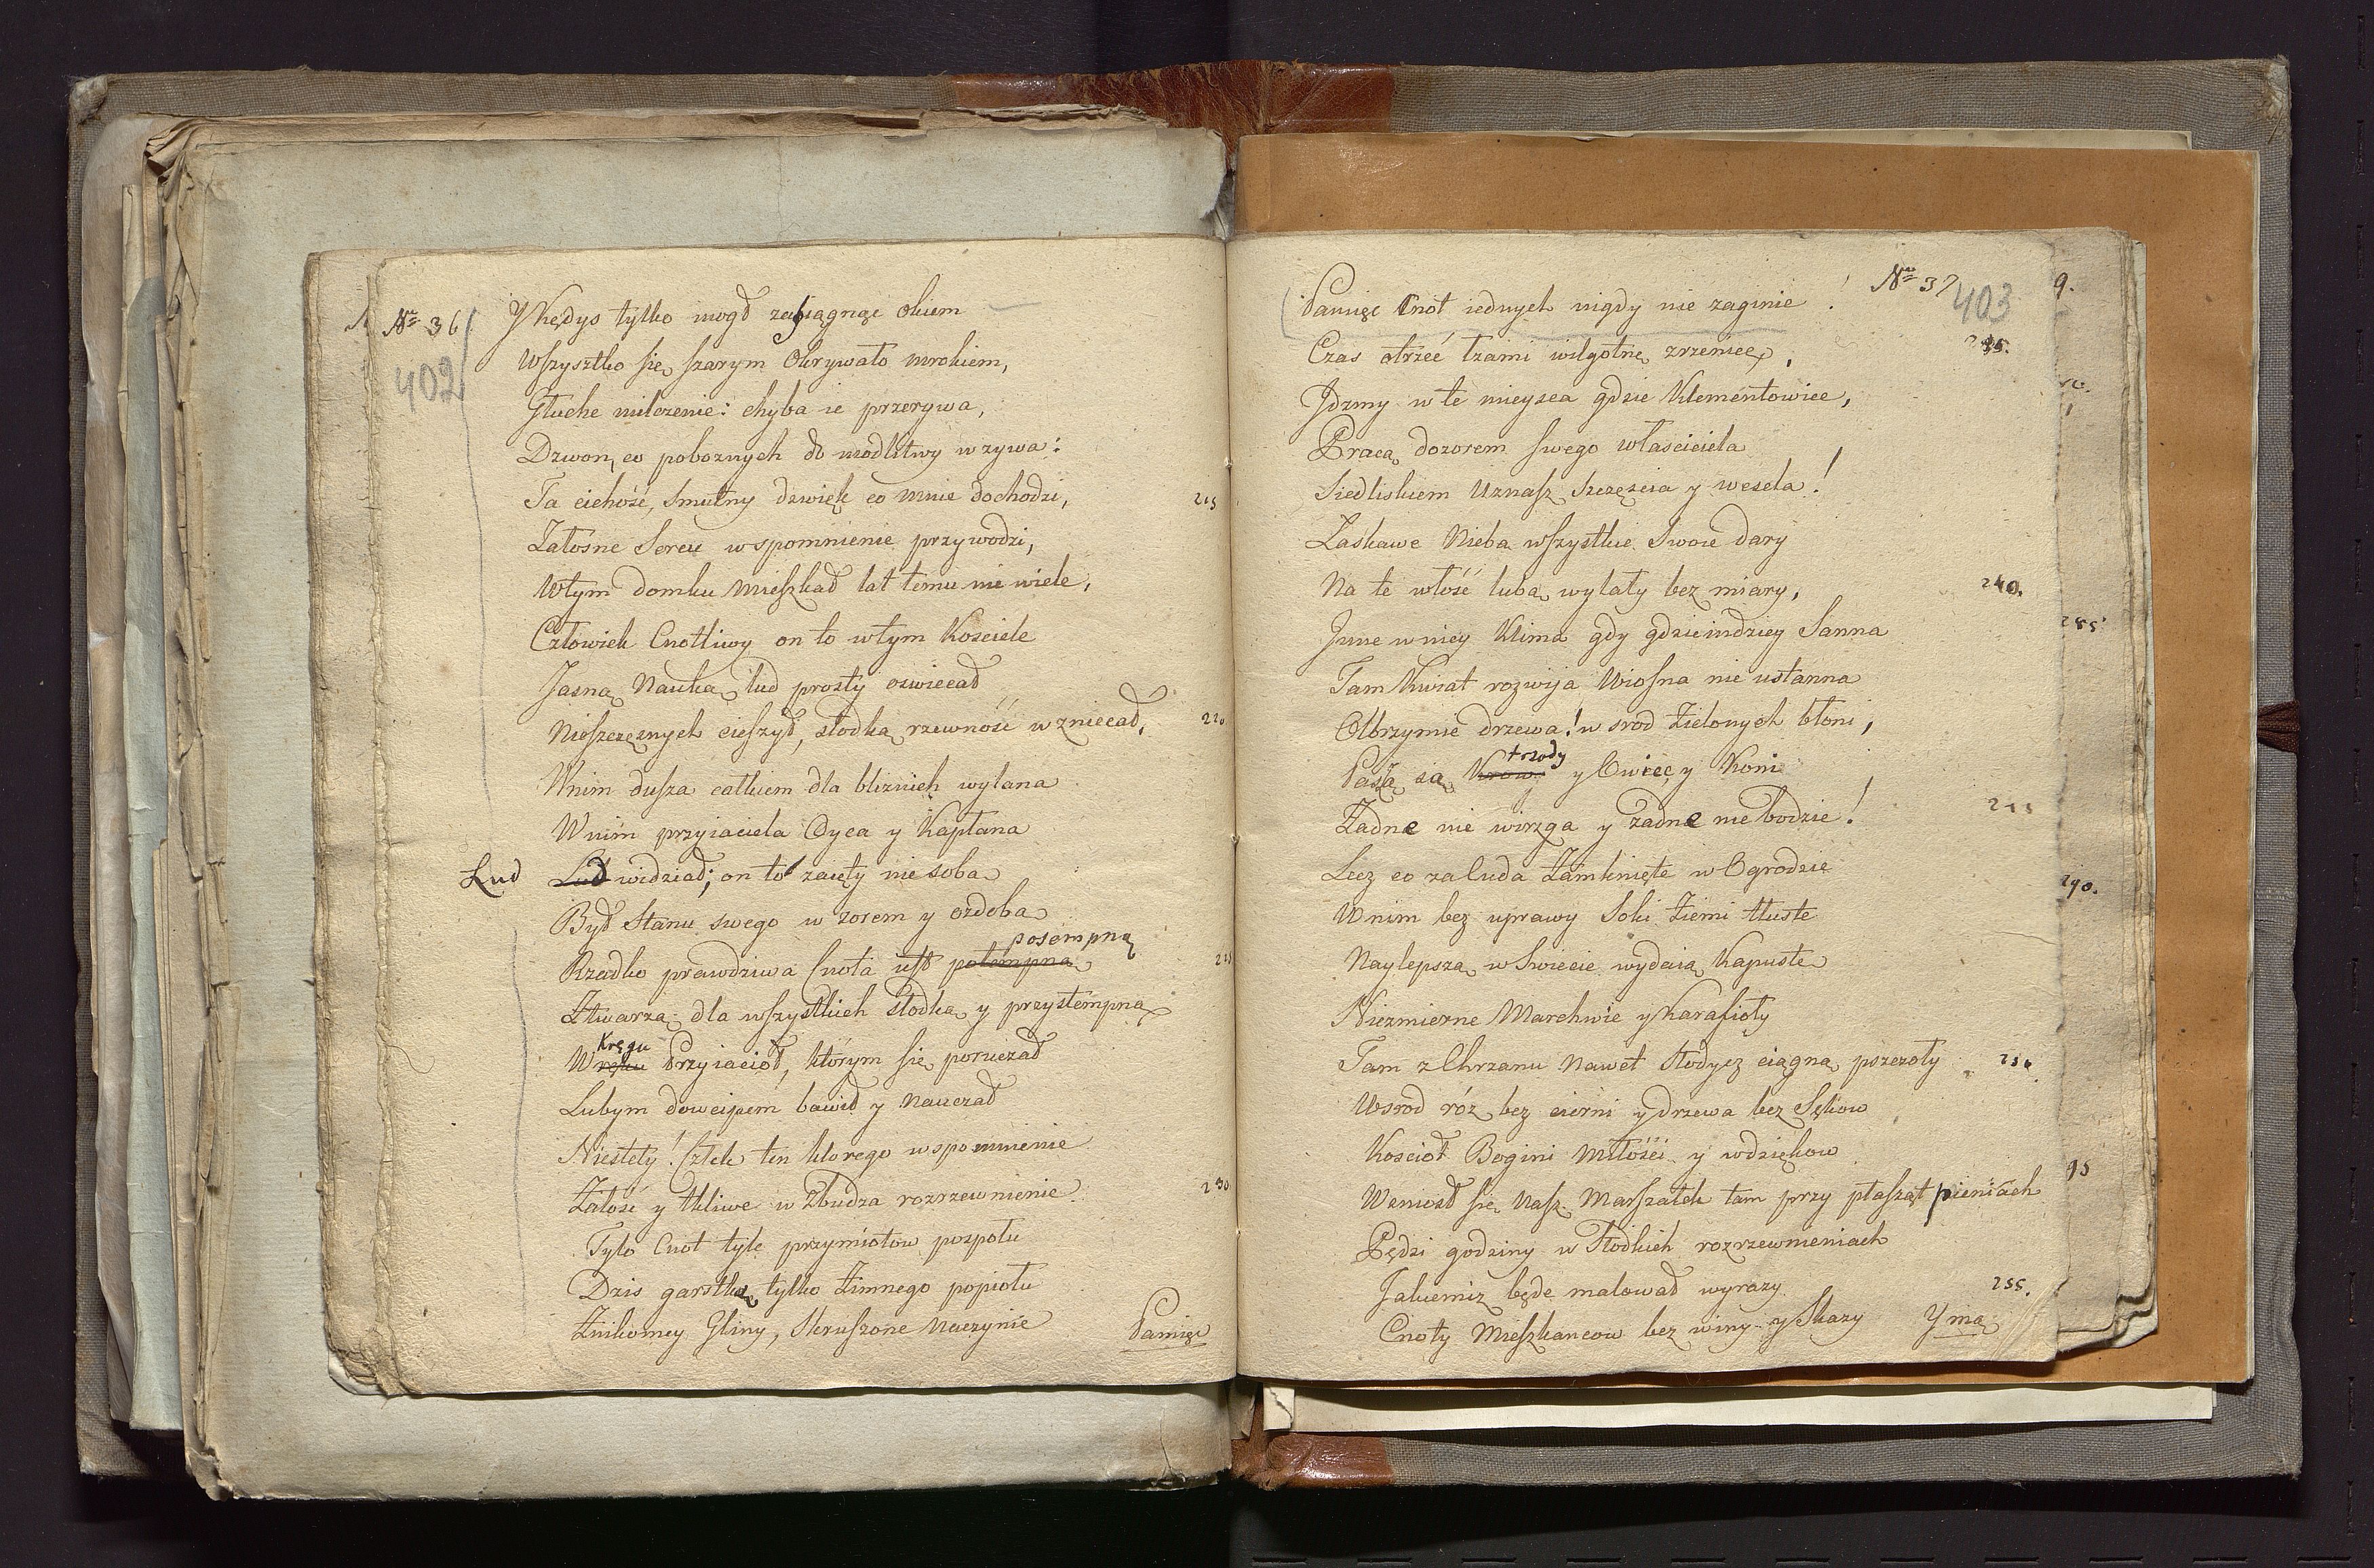 Nro 36
402
Y kędyś tylko mogł zasiągnąć okiem
Wszysztko się szarym okrywało mrokiem,
Głuche milczenie: chyba ie przerywa,
Dzwon, co poboznych do modlitwy wzywa:
Ta cichość, Smutny dzwięk co mnie dochodzi, 215
Załosne Sercu wspomnienie przywodzi,
Wtym domku Mieszkał lat temu nie wiele,
Człowiek Cnotliwy on to w tym Kosciele
Jasną Nauką lud prosty oswiecał
Nieszczęsnych cieszył, słodką rzewność wzniecał, 220
W nim dusza całkiem dla bliznich wylana
W nim przyiaciela Oyca y Kapłana
Lud Lud widział; on to zaięty nie sobą
Był Stanu swego wzorem y ozdobą
posempną
Rzadko prawdziwa Cnota iest potempna 225
Ztwarzą dla wszystkich słodką y przystempną
Kręgu
W ręku Przyiacioł, którym się poruczał
Lubym dowcipem bawił y nauczał
Niestety! Człek ten ktorego wspomnienie
Załość y tkliwe wzbudza rozrzewnienie 230
Tylo Cnot tyle przymiotow pospołu
Dzis garstką tylko zimnego popiołu
Znikomey Gliny, Skruszone Naczynie
Pamięć
Nro 37
403
9.
Pamięć Cnot iednych nigdy nie zaginie!
Czas otrzeć łzami wilgotną zrzenicę, 235.
Jdzmy w te mieysca gdzie Klementowice,
Pracą dozorem swego własciciela
Siedliskiem Uznasz Szczęscia y wesela!
Łaskawe Nieba wszystkie Swoie dary
Na te włość lubą wylały bez miary, 240.
Jnne w niey Klima gdy gdzieindziey Sanna
Tam Kwiat rozwija Wiosna nie ustanna
Olbrzymie drzewa! w srod Zielonych błoni,
trzody
Pasą są Krow y Owiec y Koni
Żadne nie wirzga y żadne nie bodzie! 245
Lecz co za Cuda Zamknięte w Ogrodzie
W nim bez uprawy Soki Ziemi tłuste
Naylepszą w Swiecie wydaią Kapustę
Niezmierne Marchwie y Karafioły
Tam z Chrzanu Nawet Słodycz ciągną pszczoły 250.
Wsrod róz bez cierni y drzewa bez Sękow
Kosciół Bogini Miłości y wdziękow
Wzniosł się Nasz Marszałek tam przy ptasząt pieniach
Pędzi godziny w Słodkich rozrzewnieniach
Jakiemiz będę malował wyrazy 255.
Cnoty Mieszkancow bez winy y Skazy
Y mą
285
290.
95